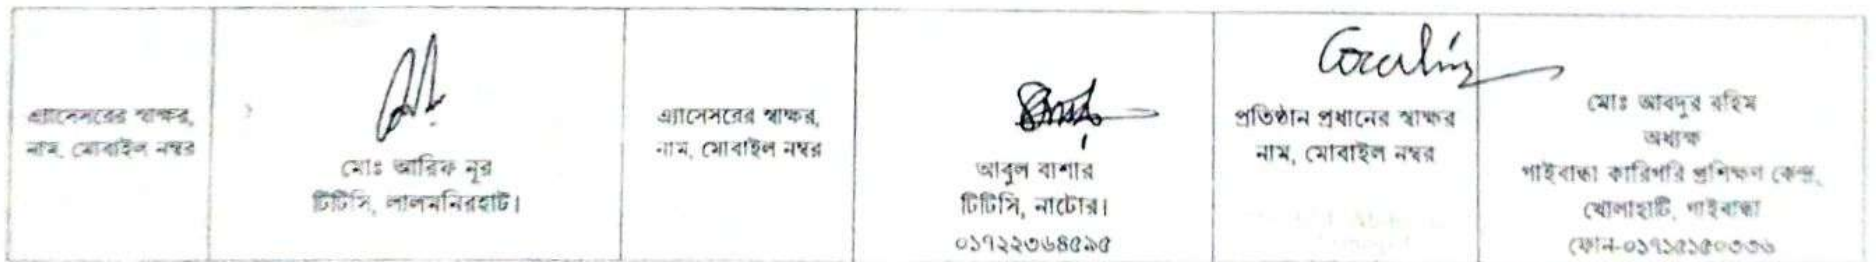 এ্যাসেসরের স্বাক্ষর,
নাম, মোবাইল নম্বর
মোঃ আরিফ নূর
টিটিসি, লালমনিরহাট।
এ্যাসেসরের স্বাক্ষর,
নাম, মোবাইল নম্বর
আবুল বাশার
টিটিসি, নাটোর।
০১৭২২৩৬৪৫৯৫
প্রতিষ্ঠান প্রধানের স্বাক্ষর
নাম, মোবাইল নম্বর
মোঃ আবদুর রহিম
অধ্যক্ষ
গাইবান্ধা কারিগরি প্রশিক্ষণ কেন্দ্র,
খোলাহাটি, গাইবান্ধা
ফোন-০১৭১৫১৫০৩৩৬